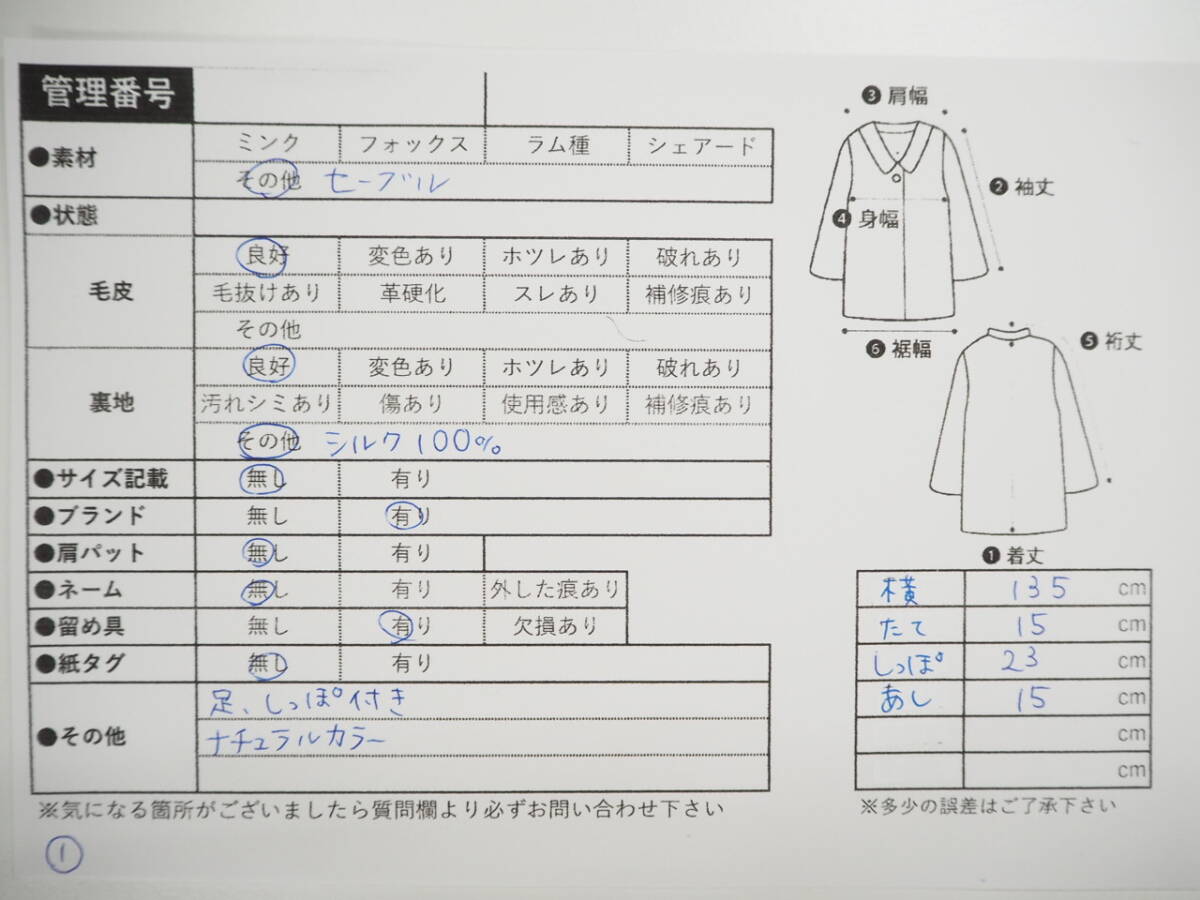 管理番号
●素材 ミンク フォックス ラム種 シェアード
その他 セーブル
●状態
毛皮 良好 変色あり ホツレあり 破れあり
毛抜けあり 革硬化 スレあり 補修痕あり
その他
裏地 良好 変色あり ホツレあり 破れあり
汚れシミあり 傷あり 使用感あり 補修痕あり
その他 シルク100%
●サイズ記載 無し 有り
●ブランド 無し 有り
●肩パット 無し 有り
●ネーム 無し 有り 外した痕あり
●留め具 無し 有り 欠損あり
●紙タグ 無し 有り
●その他 足、しっぽ付き
ナチュラルカラー
※気になる箇所がございましたら質問欄より必ずお問い合わせ下さい
①
❸肩幅
❷袖丈
❹身幅
❻裾幅
❺裄丈
❶着丈
横 135 cm
たて 15 cm
しっぽ 23 cm
あし 15 cm
cm
cm
※多少の誤差はご了承下さい